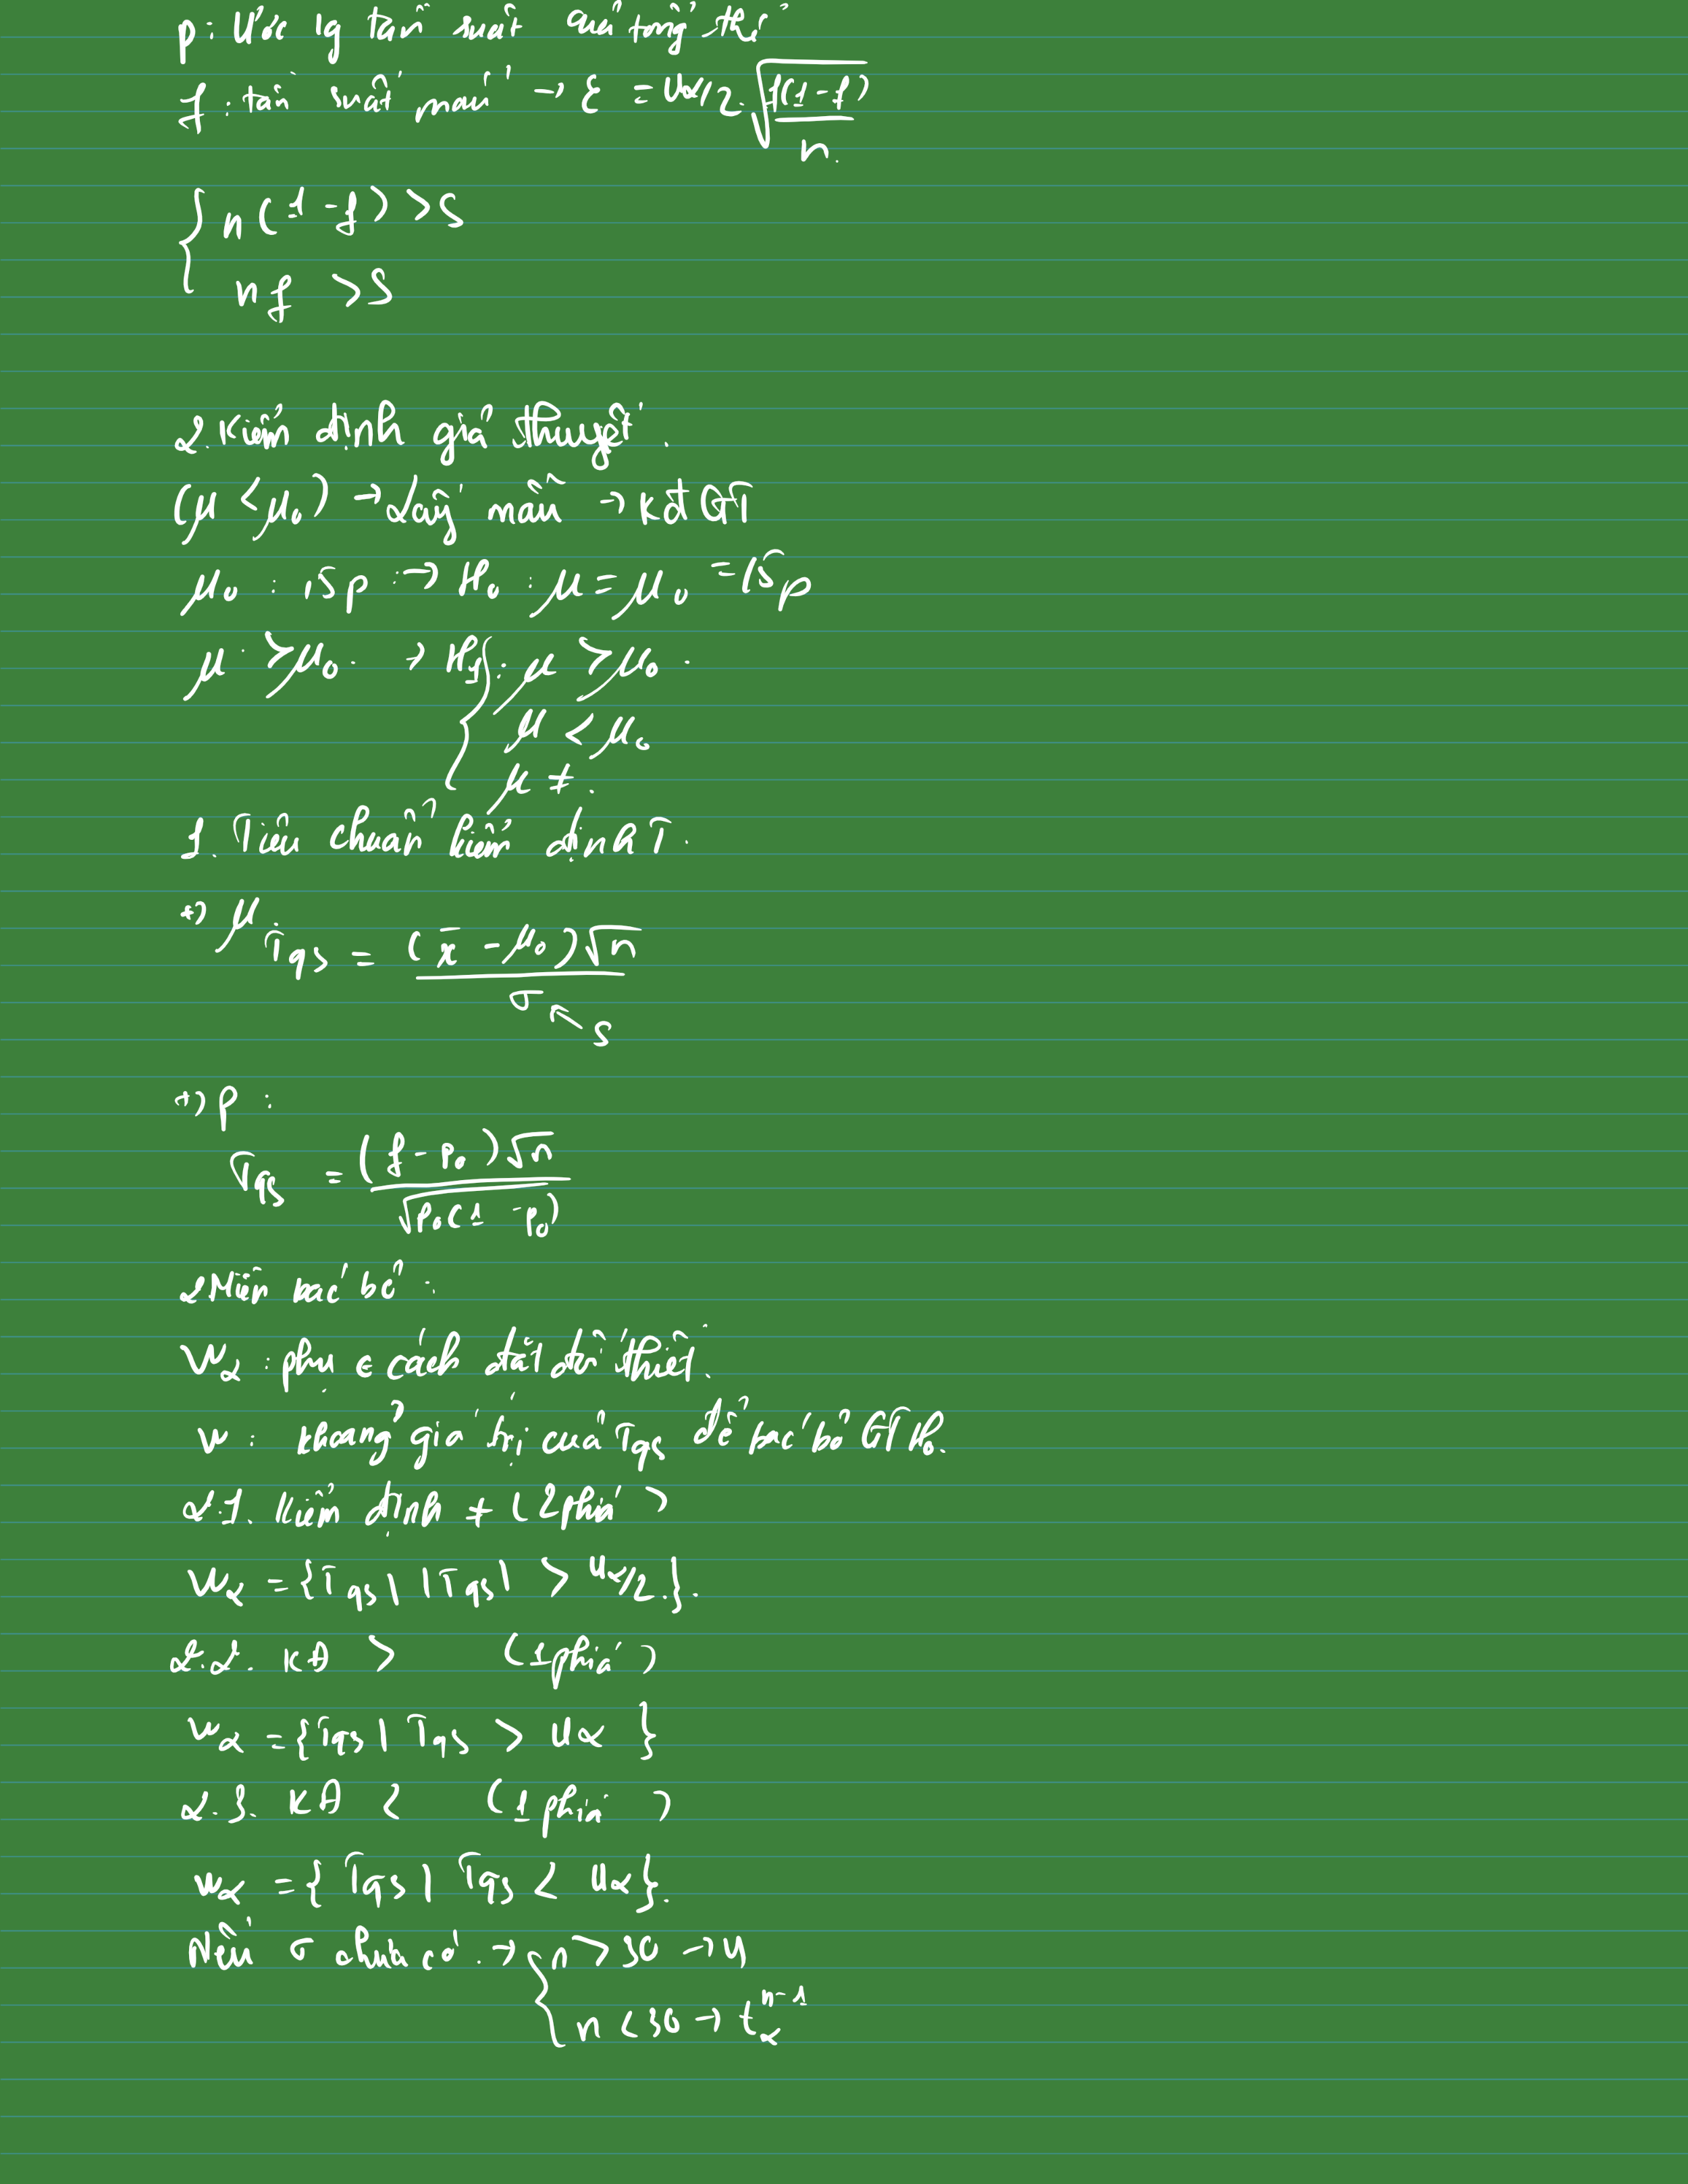 p: Ước lg tần suất của tổng thể
f: tần suất mẫu → ε = uα/2.√(f(1-f)/n).
{ n(1-f) > 5
nf > 5
2. Kiểm định giả thuyết.
(μ < μ₀) → lấy mẫu → KđGT
μ₀ : 15p → H₀ : μ = μ₀ = 15p
μ > μ₀. → H₁ { : μ > μ₀.
μ < μ₀
μ ≠ .
1. Tiêu chuẩn kiểm định T.
+) μ
Tqs = (x̄ - μ₀)√n / σ ↖ s
+) p :
Tqs = (f - p₀)√n / √(p₀(1 - p₀))
2 Miền bác bỏ :
Wα : phụ ∈ cách đặt đối thiết.
W : khoảng giá trị của Tqs để bác bỏ GT H₀.
2.1. Kiểm định ≠ (2 phía)
Wα = {Tqs | |Tqs| > uα/2.}.
2.2. KĐ > (1 phía)
Wα = {Tqs | Tqs > uα }
2.3. KĐ < (1 phía)
Wα = { Tqs | Tqs < uα}.
Nếu σ chưa có : → { n > 30 → u
n < 30 → tαⁿ⁻¹